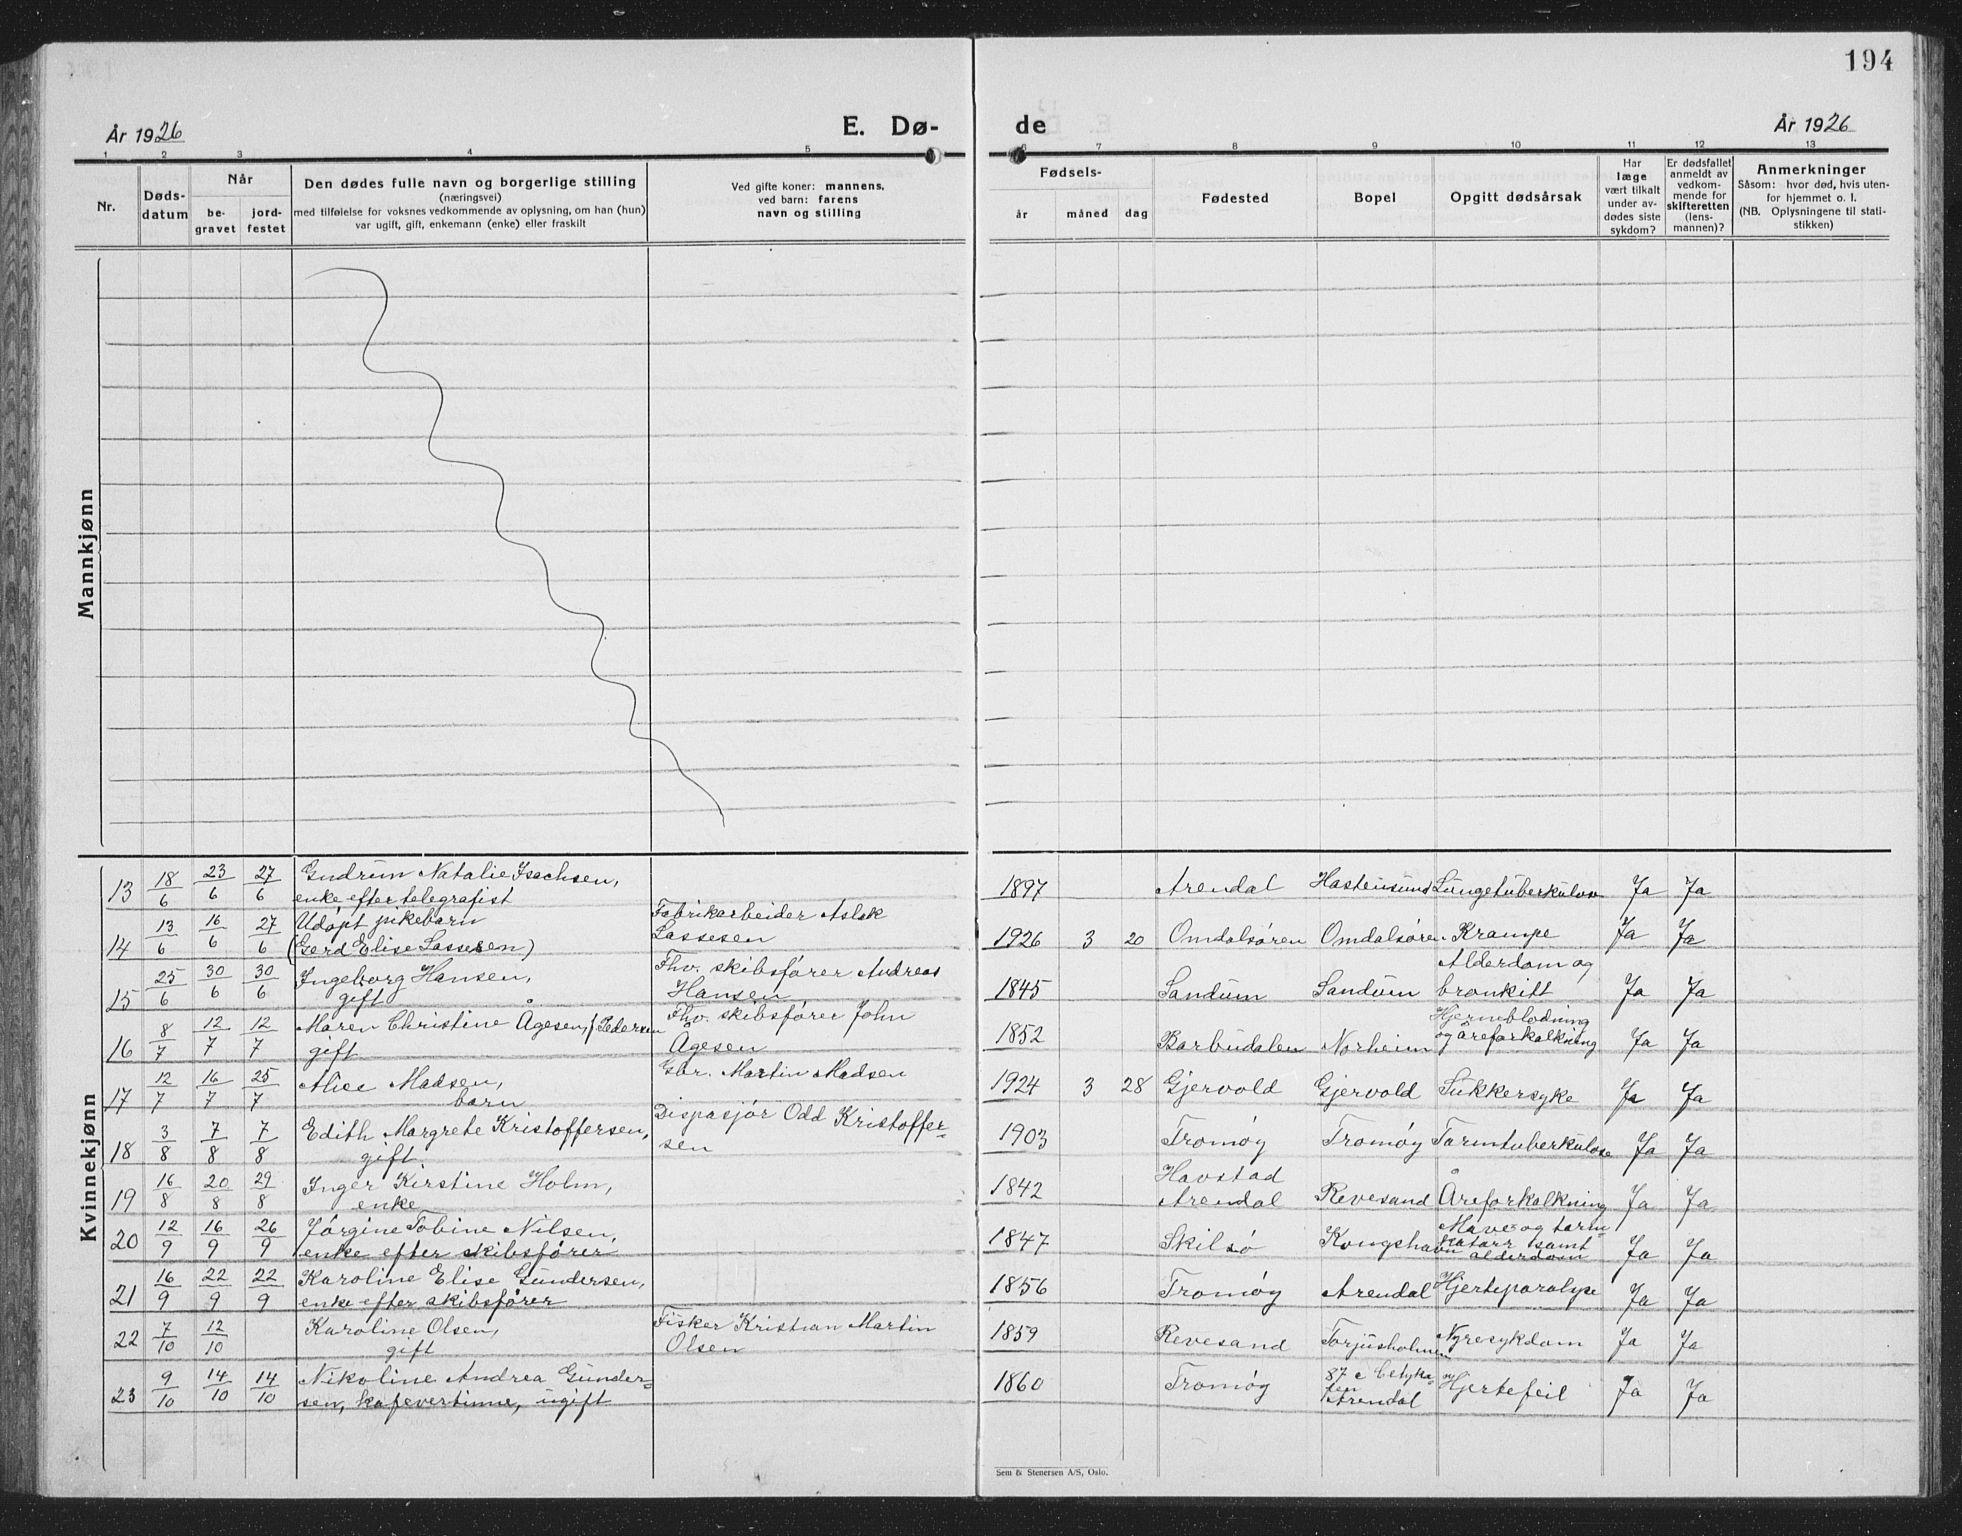 194
År 1926
E. Dø-
de
År 1926
1 2 3 4 5 6 7 8 9 10 11 12 13
Nr.
Døds-
datum
Når
be-
gravet
jord-
festet
Den dødes fulle navn og borgerlige stilling
(næringsvei)
med tilføielse for voksnes vedkommende av oplysning, om han (hun)
var ugift, gift, enkemann (enke) eller fraskilt
Ved gifte koner: mannens,
ved barn: farens
navn og stilling
Fødsels-
år
måned
dag
Fødested
Bopel
Opgitt dødsårsak
Har
læge
vært tilkalt
under av-
dødes siste
sykdom?
Er dødsfallet
anmeldt av
vedkom-
mende for
skifteretten
(lens-
mannen)?
Anmerkninger
Såsom: hvor død, hvis uten-
for hjemmet o. l.
(NB. Oplysningene til stati-
stikken)
Mannkjønn
Kvinnekjønn
13 18/6 23/6 27/6 Gudrun Natalie Isachsen,
enke efter telegrafist
1897 Arendal Hastensund Lungetuberkulose Ja Ja
14 13/6 16/6 27/6 Udøpt pikebarn
(Gerd Elise Lassesen)
Fabrikarbeider Aslak
Lassesen
1926 3 20 Omdalsøren Omdalsøren Krampe Ja Ja
15 25/6 30/6 30/6 Ingeborg Hansen,
gift
Fhv. skibsfører Andreas
Hansen
1845 Sandum Sandum Alderdom og
bronkitt Ja Ja
16 8/7 12/7 12/7 Maren Christine Ågesen, f. Pedersen
gift
Fhv. skibsfører John
Ågesen
1852 Barbudalen Norheim Hjerneblødning
og åreforkalkning Ja Ja
17 12/7 16/7 25/7 Alice Madsen,
barn
Gbr. Martin Madsen
1924 3 28 Gjervold Gjervold Sukkersyke Ja Ja
18 3/8 7/8 7/8 Edith Margrete Kristoffersen,
gift
Dispasjør Odd Kristoffer-
sen
1903 Tromøy Tromøy Tarmtuberkulose Ja Ja
19 16/8 20/8 29/8 Inger Kirstine Holm,
enke
1842 Havstad
Arendal Revesand Åreforkalkning Ja Ja
20 12/9 16/9 26/9 Jørgine Tobine Nilsen,
enke efter skibsfører
1847 Skilsø Kongshavn Mave og tarm-
katarr samt
alderdom Ja Ja
21 16/9 22/9 22/9 Karoline Elise Gundersen,
enke efter skibsfører
1856 Tromøy Arendal Hjerteparalyse Ja Ja
22 7/10 12/10 Karoline Olsen,
gift
Fisker Kristian Martin
Olsen
1859 Revesand Torjusholmen Nyresykdom Ja Ja
23 9/10 14/10 14/10 Nikoline Andrea Gunder-
sen, kafevertinne, ugift
1860 Tromøy
Arendal Hjertefeil Ja Ja
Sem & Stenersen A/S, Oslo.